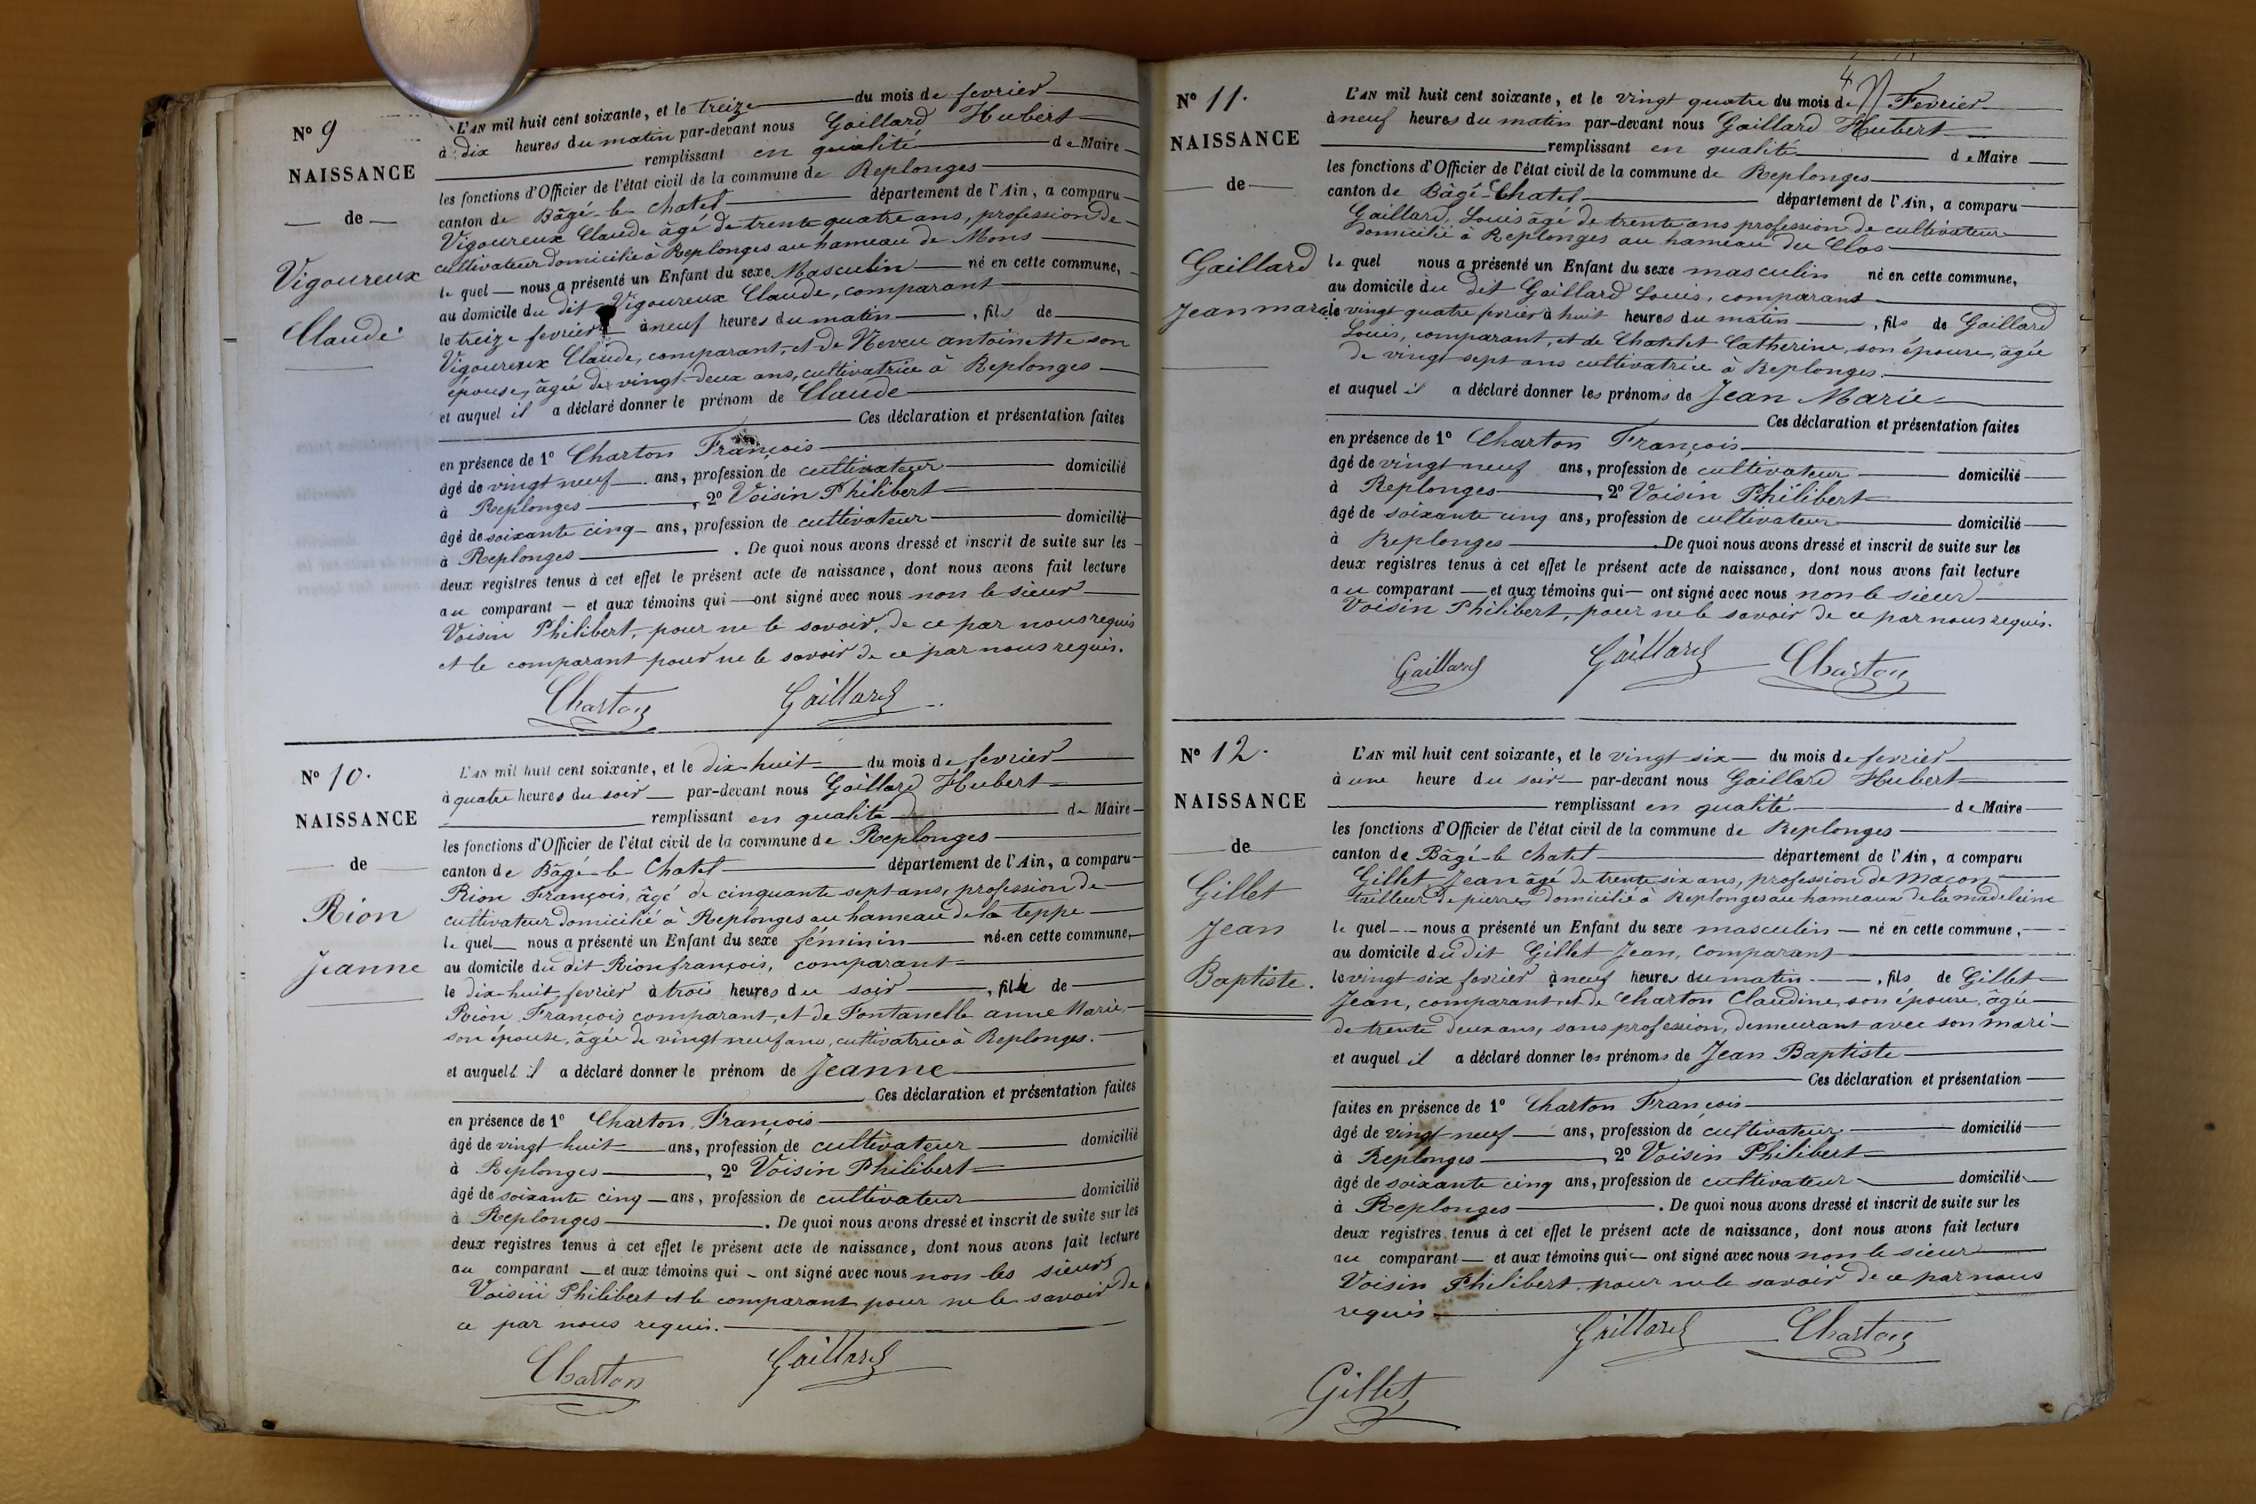 N° 9
NAISSANCE
de
Vigoureux
Claude
L'AN mil huit cent soixante, et le treize du mois de fevrier
à dix heures du matin par-devant nous Gaillard Hubert
remplissant en qualité de Maire
les fonctions d'Officier de l'état civil de la commune de Replonges
canton de Bâgé-le-Chatel département de l'Ain, a comparu
Vigoureux Claude âgé de trente quatre ans, profession de
cultivateur domicilié à Replonges au hameau de Mons
le quel nous a présenté un Enfant du sexe Masculin né en cette commune,
au domicile du dit Vigoureux Claude, comparant
le treize fevrier à neuf heures du matin, fils de
Vigoureux Claude, comparant, et de Neveu antoinette son
épouse, âgée de vingt-deux ans, cultivatrice à Replonges
et auquel il a déclaré donner le prénom de Claude
Ces déclaration et présentation faites
en présence de 1° Charton François
âgé de vingt neuf ans, profession de cultivateur domicilié
à Replonges, 2° Voisin Philibert
âgé de soixante cinq ans, profession de cultivateur domicilié
à Replonges. De quoi nous avons dressé et inscrit de suite sur les
deux registres tenus à cet effet le présent acte de naissance, dont nous avons fait lecture
au comparant et aux témoins qui ont signé avec nous non le sieur
Voisin Philibert, pour ne le savoir, de ce par nous requis
et le comparant pour ne le savoir de ce par nous requis.
Charton Gaillard
N° 10.
NAISSANCE
de
Rion
Jeanne
L'AN mil huit cent soixante, et le dix-huit du mois de fevrier
à quatre heures du soir par-devant nous Gaillard Hubert
remplissant en qualité de Maire
les fonctions d'Officier de l'état civil de la commune de Replonges
canton de Bâgé-le Chatel département de l'Ain, a comparu
Rion François, âgé de cinquante sept ans, profession de
cultivateur domicilié à Replonges au hameau de la teppe
le quel nous a présenté un Enfant du sexe féminin né en cette commune,
au domicile du dit Rion françois, comparant
le dix-huit fevrier à trois heures du soir, fille de
Rion François comparant, et de Fontanelle anne Marie,
son épouse, âgée de vingt neuf ans, cultivatrice à Replonges.
et auquelle il a déclaré donner le prénom de Jeanne
Ces déclaration et présentation faites
en présence de 1° Charton François
âgé de vingt huit ans, profession de cultivateur domicilié
à Replonges, 2° Voisin Philibert
âgé de soixante cinq ans, profession de cultivateur domicilié
à Replonges. De quoi nous avons dressé et inscrit de suite sur les
deux registres tenus à cet effet le présent acte de naissance, dont nous avons fait lecture
au comparant et aux témoins qui ont signé avec nous non les sieurs
Voisin Philibert et le comparant pour ne le savoir de
ce par nous requis.
Charton Gaillard
4
N° 11.
NAISSANCE
de
Gaillard
Jean marie
L'AN mil huit cent soixante, et le vingt quatre du mois de Fevrier
à neuf heures du matin par-devant nous Gaillard Hubert
remplissant en qualité de Maire
les fonctions d'Officier de l'état civil de la commune de Replonges
canton de Bâgé-Chatel département de l'Ain, a comparu
Gaillard, Louis âgé de trente ans profession de cultivateur
domicilié à Replonges au hameau du Clos
le quel nous a présenté un Enfant du sexe masculin né en cette commune,
au domicile du dit Gaillard Louis, comparant
le vingt quatre fevrier à huit heures du matin, fils de Gaillard
Louis, comparant, et de Chatelet Catherine, son épouse, âgée
de vingt sept ans cultivatrice à Replonges.
et auquel il a déclaré donner les prénoms de Jean Marie
Ces déclaration et présentation faites
en présence de 1° Charton François
âgé de vingt neuf ans, profession de cultivateur domicilié
à Replonges, 2° Voisin Philibert
âgé de soixante cinq ans, profession de cultivateur domicilié
à Replonges. De quoi nous avons dressé et inscrit de suite sur les
deux registres tenus à cet effet le présent acte de naissance, dont nous avons fait lecture
au comparant et aux témoins qui ont signé avec nous non le sieur
Voisin Philibert, pour ne le savoir de ce par nous requis.
Gaillard Gaillard Charton
N° 12.
NAISSANCE
de
Gillet
Jean
Baptiste.
L'AN mil huit cent soixante, et le vingt-six du mois de fevrier
à une heure du soir par-devant nous Gaillard Hubert
remplissant en qualité de Maire
les fonctions d'Officier de l'état civil de la commune de Replonges
canton de Bâgé-le chatel département de l'Ain, a comparu
Gillet Jean âgé de trente six ans, profession de maçon
tailleur de pierres domicilié à Replonges au hameaux de la madeleine
le quel nous a présenté un Enfant du sexe masculin né en cette commune,
au domicile du dit Gillet Jean, comparant
le vingt six fevrier à neuf heures du matin, fils de Gillet
Jean, comparant, et de Charton Claudine, son épouse, âgée
de trente deux ans, sans profession, demeurant avec son mari
et auquel il a déclaré donner les prénoms de Jean Baptiste
Ces déclaration et présentation
faites en présence de 1° Charton François
âgé de vingt neuf ans, profession de cultivateur domicilié
à Replonges, 2° Voisin Philibert
âgé de soixante cinq ans, profession de cultivateur domicilié
à Replonges. De quoi nous avons dressé et inscrit de suite sur les
deux registres tenus à cet effet le présent acte de naissance, dont nous avons fait lecture
au comparant et aux témoins qui ont signé avec nous non le sieur
Voisin Philibert pour ne le savoir de ce par nous
requis
Gaillard Charton
Gillet